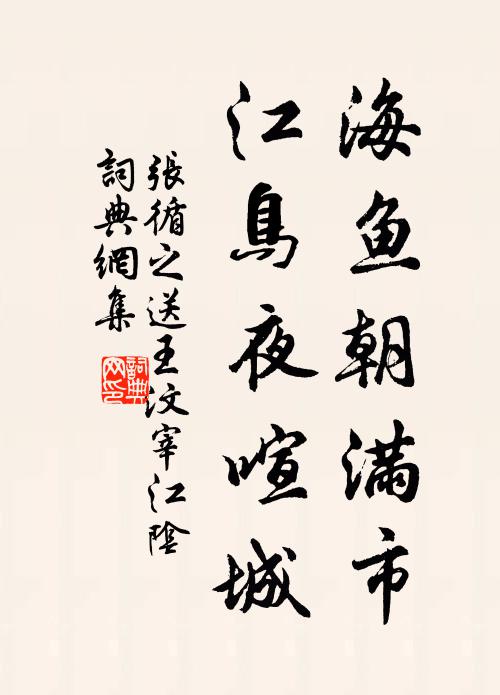 海鱼朝满市
江鳥夜喧城
張循之送王汶宰江陰
詞典網集
詞典網印